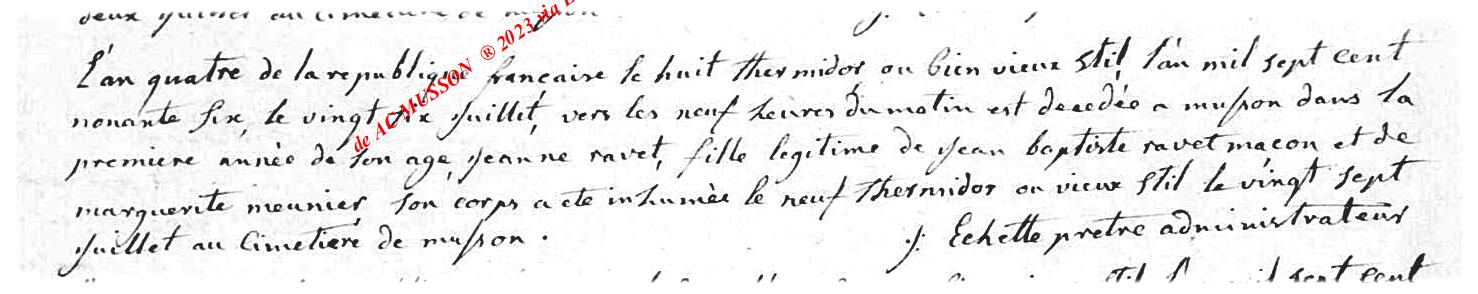 deux juillet au cimetiere de musson.
L'an quatre de la republique francaise le huit thermidor ou bien vieux stil l'an mil sept cent
nonante six, le vingt six juillet, vers les neuf heures du matin est decedée a musson dans la
premiere année de son age, jeanne ravet, fille legitime de jean baptiste ravet macon et de
marguerite meunier, son corps a eté inhumée le neuf thermidor ou vieux stil le vingt sept
juillet au cimetiere de musson.
j: Echette pretre administrateur
stil l'an mil sept cent
de AC MUSSON ® 2023 via